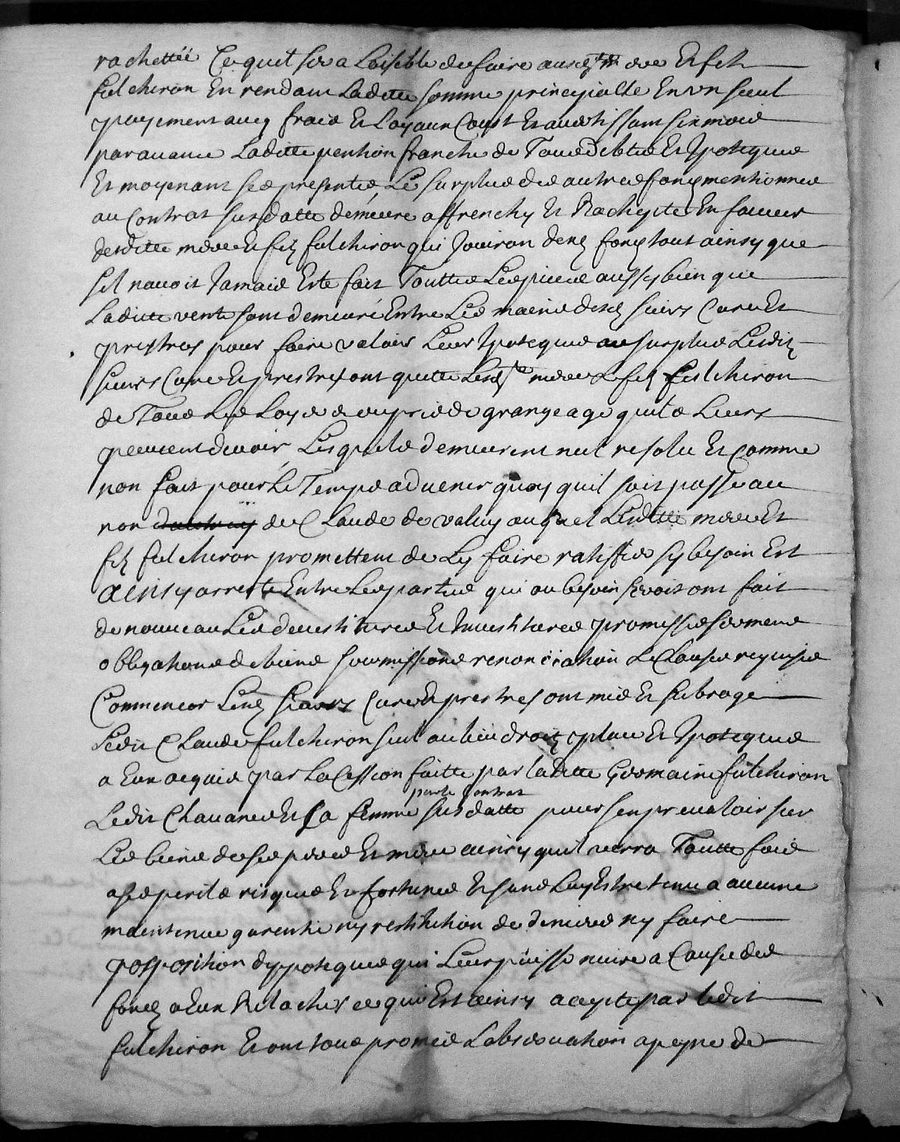 rachettée Ce quil sera Loisible de faire ausd mere Et fils
fulchiron En rendant Laditte somme principialle En un seul
payement avec fraie Et Loyaux Coust Et avertissant six mois
par avance Laditte pention franche de Tous debtes Et Ypoteques
Et moyenant ses presentes Le surplus des autres fonds mentionnes
au Contrat susdatte demeure affrenchy Et Racheptés En faveur
desditte mere Et fils fulchiron qui Jouiron desd fonds tout ainsy que
sil navoit Jamais Este fait Touttes Les pieces aussy bien que
Laditte vente sont demeuré Entre Les mains desd sieurs Curé Et
prestres pour faire valoir Leur Ypoteque au surplus Lesdit
sieurs Curé Et prestres ont quitte Lesd mere et fils fulchiron
de Tous Les Loyers ou pris de grangeage quils Leurs
peuvent devoir Lesquels demeurent nul resolu Et comme
non fait pour Le Temps advenir quoy quil soit passé au
non de Claude de valuy auquel Lesditte mere Et
fils fulchiron promettent de Ly faire ratiffier sy besoin Est
ainsy arresté Entre Les parties qui au besoin seroit ont fait
de nouveau Les devestitures Et Investitures promisses serment
obligations de biens soumissions renonciation Et Clauses requises
Comme ausy Lesd sieurs Curé Et prestres ont mis Et subrogé
Ledit Claude fulchiron seul au lieu droit place Et Ypoteque
a Eux acquis par La Cession faitte par laditte Germaine fulchiron
par le Contrat
Ledit Chavanes Et sa femme susdatte pour sen prevaloir sur
Les biens de ses pere Et mere ainsy quil verra Toutte fois
a ses perils risques Et fortunes Et sans Luy Estre tenu a aucune
maintenue garentie ny restitution de deniers ny faire
position dypoteque qui Leur puisse nuire a Cause des
fonds a Eux Relachés ce qui Est ainsy accepté par ledit
fulchiron Et ont tous promis Lobservation a peyne de